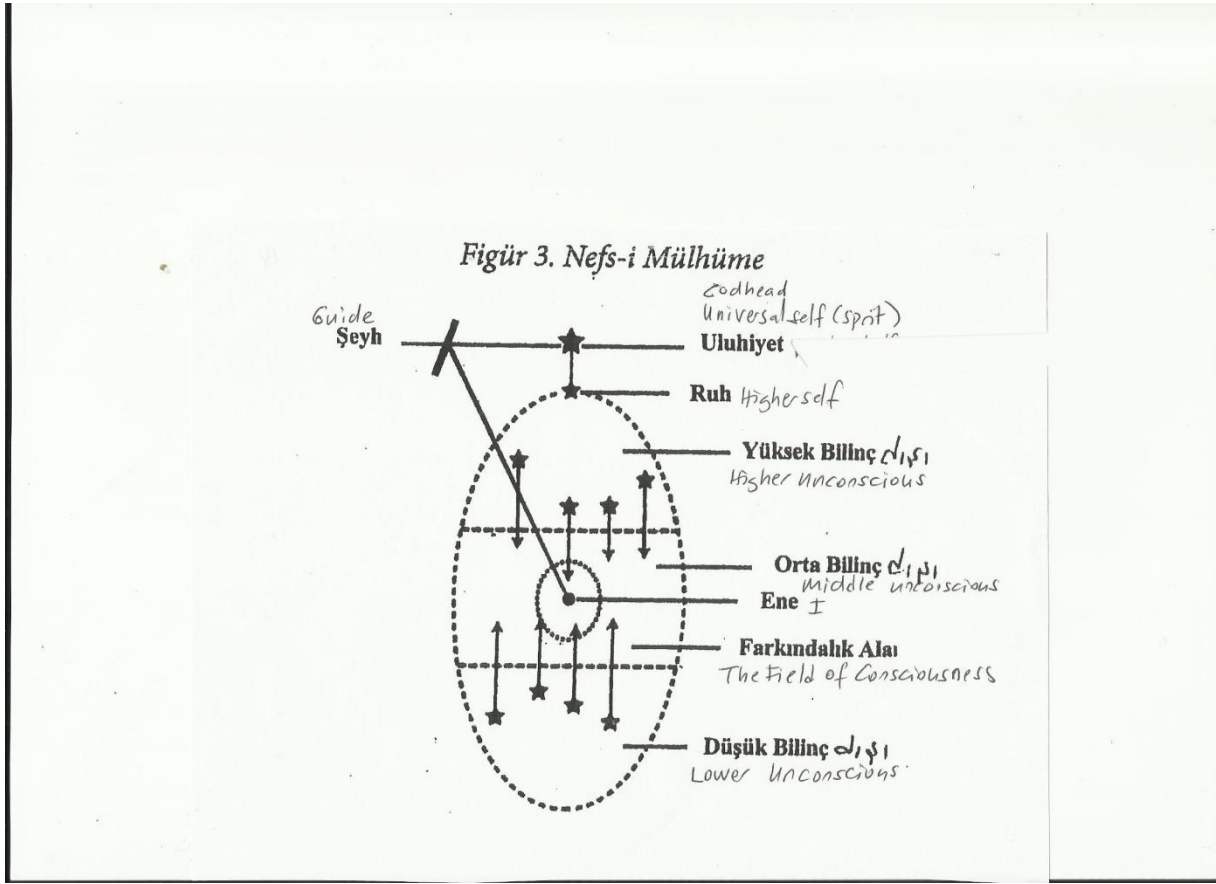 Figür 3. Nefs-i Mülhüme
Godhead
Universal self (sprit)
Guide
Şeyh
Uluhiyet
Ruh Higher self
Yüksek Bilinç
Higher Unconscious
Orta Bilinç
Middle unconscious
Ene I
Farkındalık Alaı
The Field of Consciousness
Düşük Bilinç
Lower Unconscious